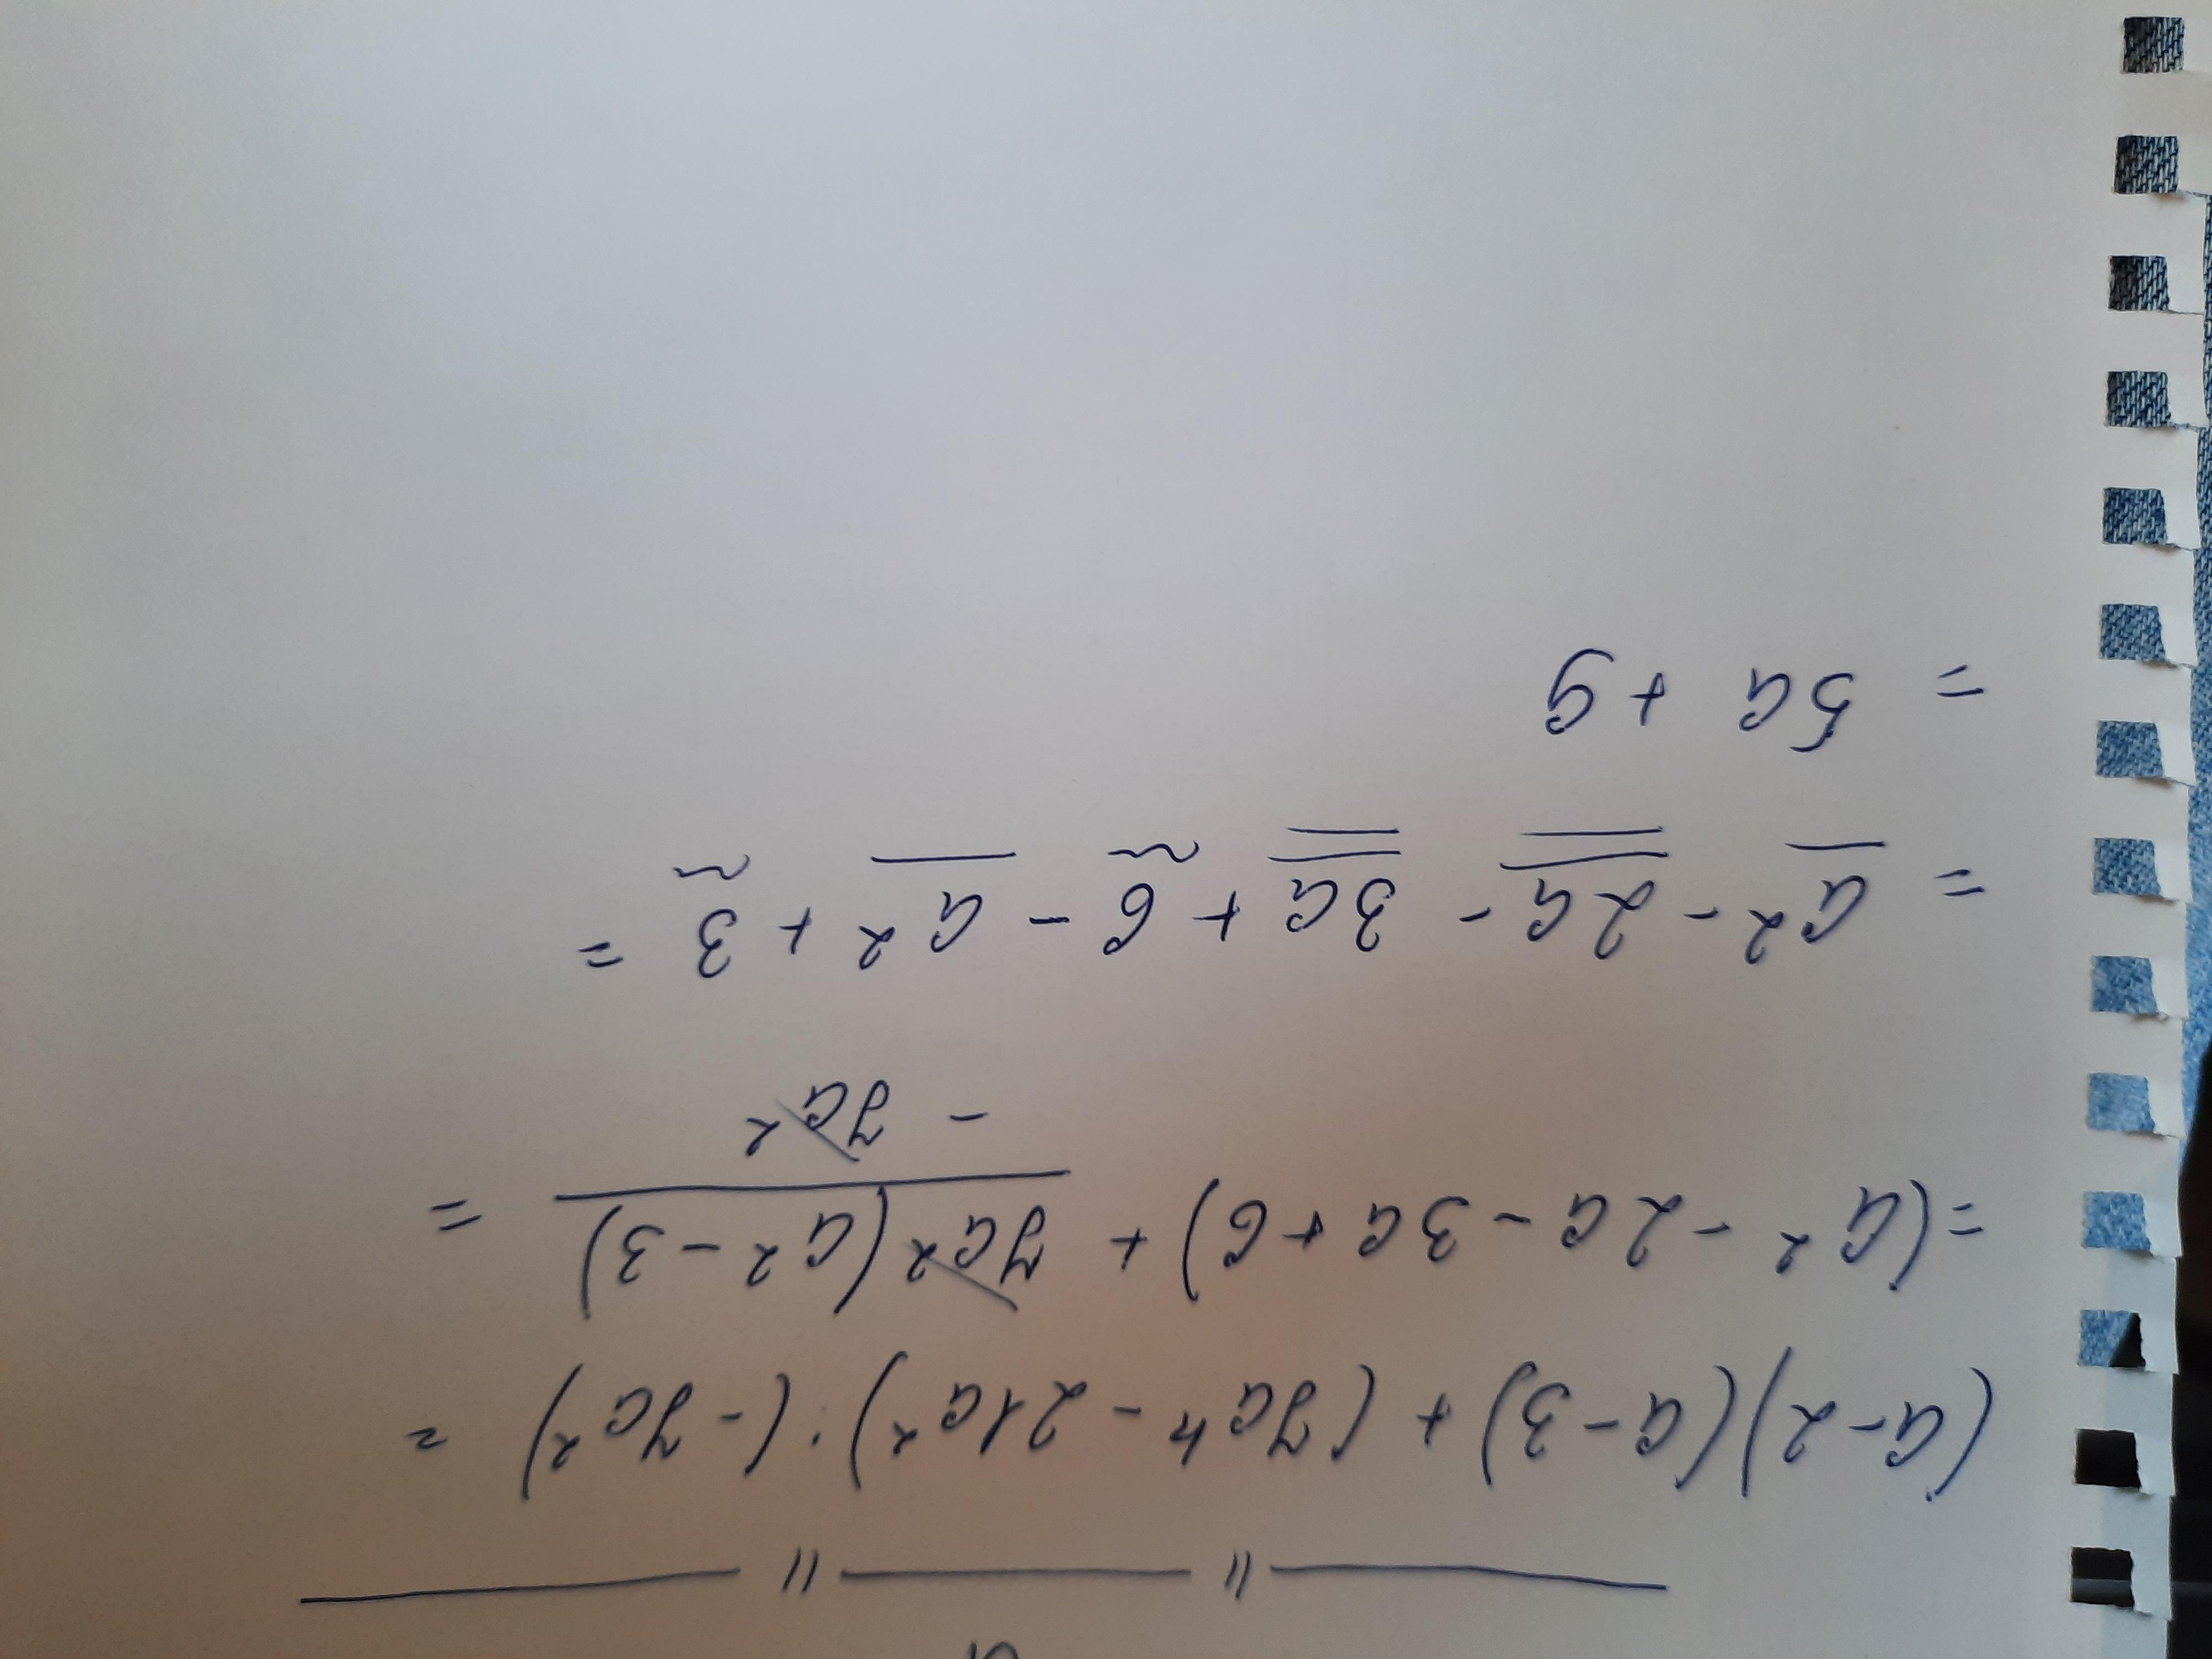 — " — " —
(a-2)(a-3) + (7a⁴ - 21a²) : (-7a²) =
= (a² - 2a - 3a + 6) + 7a²(a² - 3) / - 7a² =
= a² - 2a - 3a + 6 - a² + 3 =
= 5a + 9